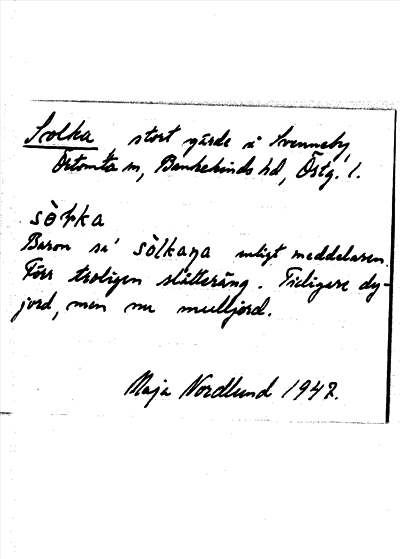 Solka stort gärde i Svenneby,
Örtomta sn, Bankekinds hd, Östg. l.
sòɫka
Baron sa' sòlkaɳa enligt meddelaren.
Förr troligen slåtteräng. Tidigare dy-
jord, men nu mulljord.
Maja Nordlund 1947.